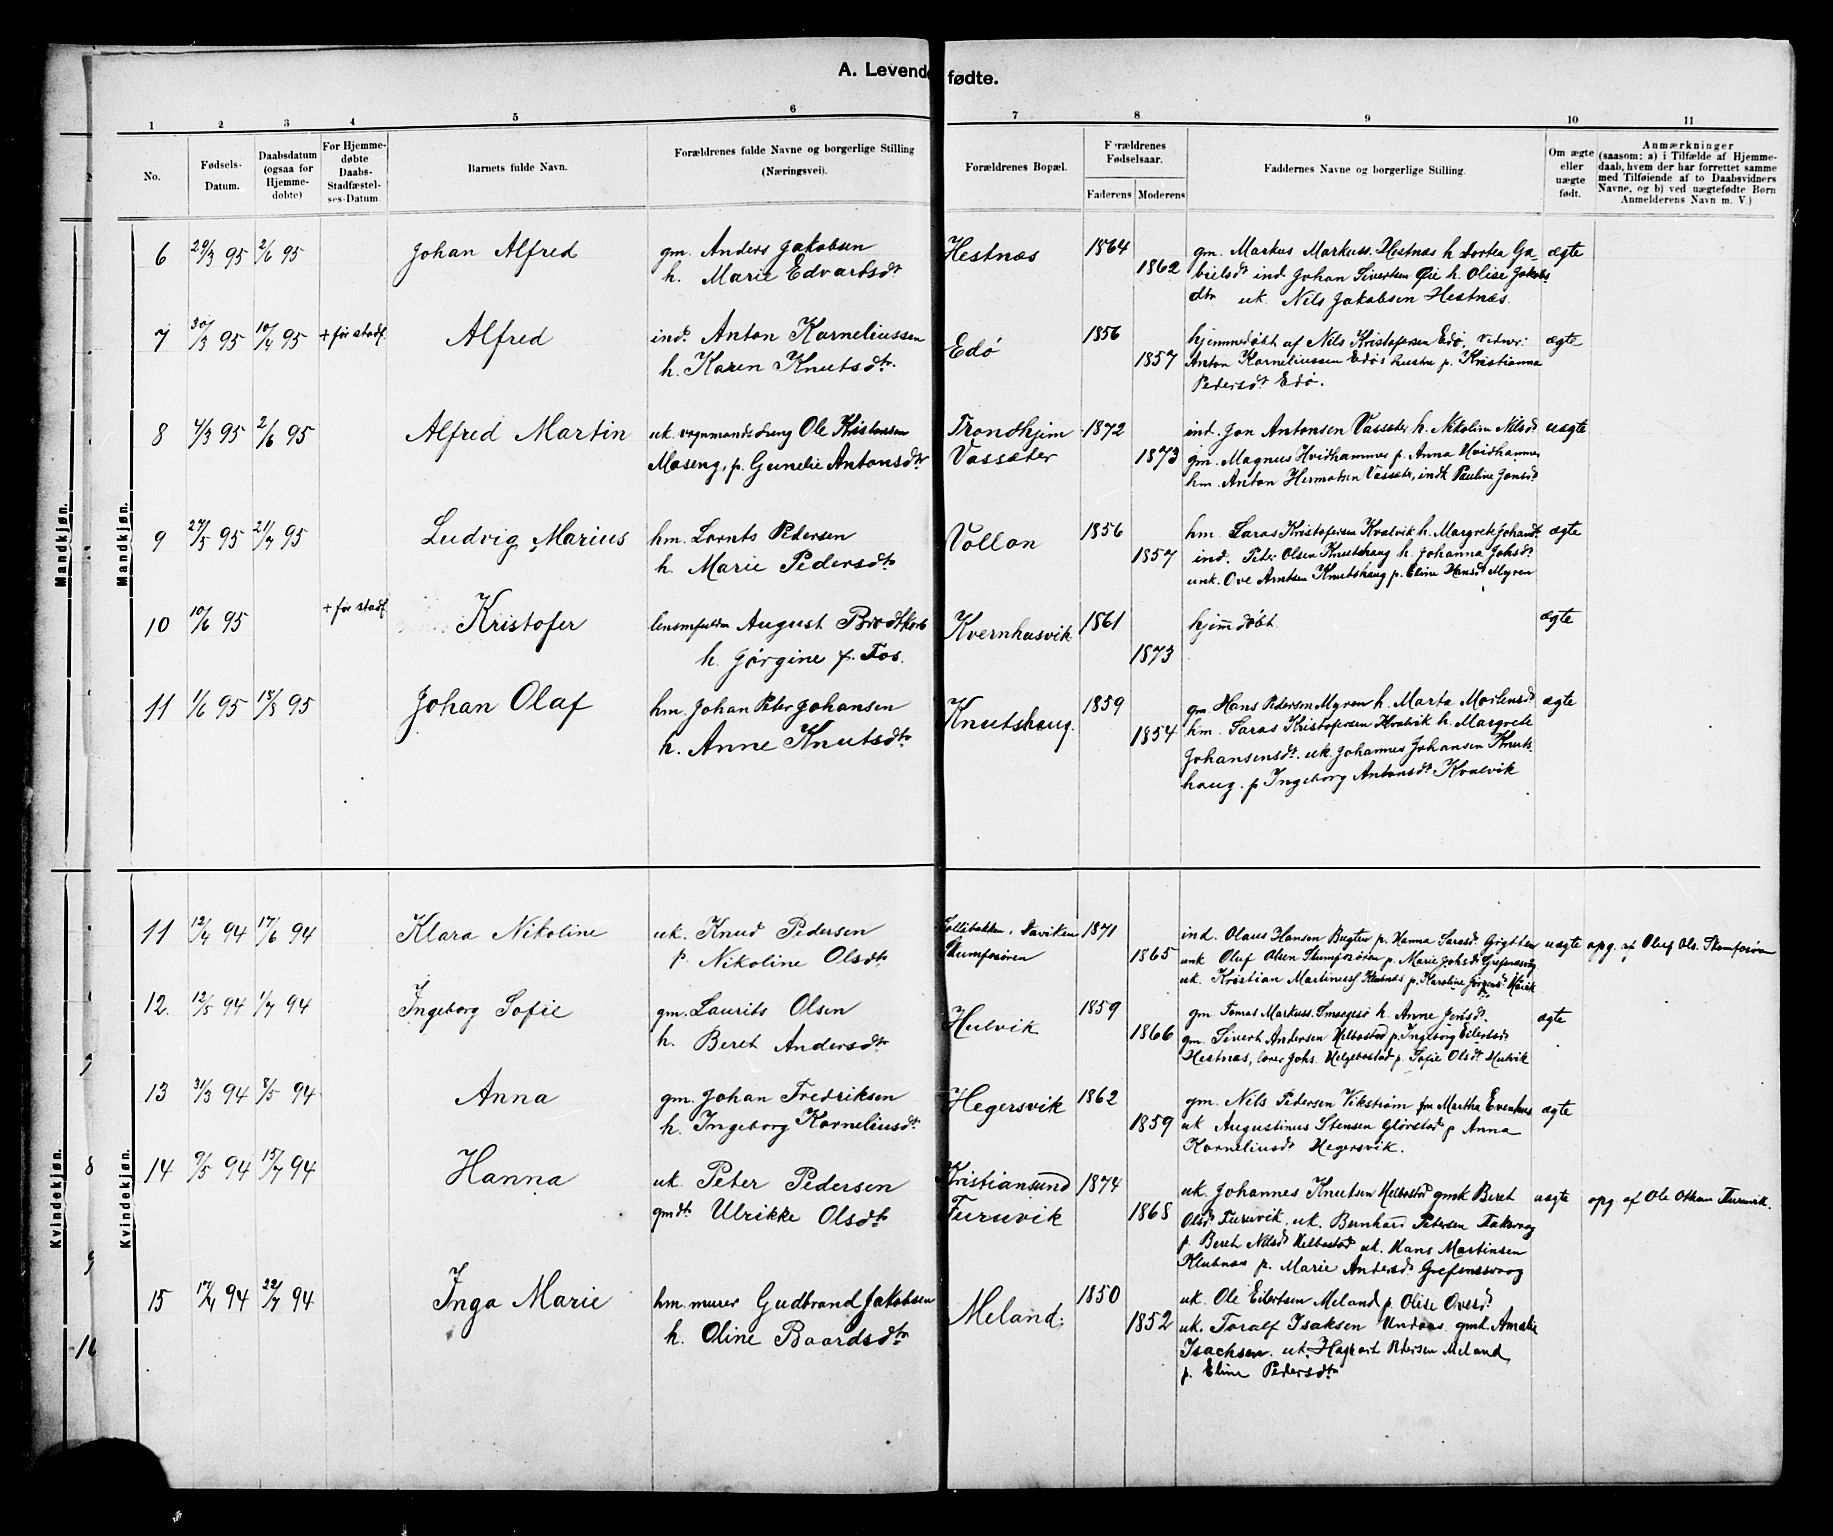 A. Levende fødte.
1 2 3 4 5 6 7 8 9 10 11
No.
Fødsels-
Datum.
Daabsdatum
(ogsaa for
Hjemme-
døbte)
For Hjemme-
døbte
Daabs-
Stadfæstel-
ses-Datum.
Barnets fulde Navn.
Forældrenes fulde Navne og borgerlige Stilling
(Næringsvei).
Forældrenes Bopæl.
Forældrenes
Fødselsaar.
Faderens Moderens
Faddernes Navne og borgerlige Stilling.
Om ægte
eller
uægte
født.
Anmærkninger
(saasom: a) i Tilfælde af Hjemme-
daab, hvem der har forrettet samme
med Tilføiende af to Daabsvidners
Navne, og b) ved uægtefødte Børn
Anmelderens Navn m. V.)
Mandkjøn.
Mandkjøn.
6 29/3 95 2/6 95 Johan Alfred gm. Anders Jakobsen
h. Marie Edvardsdt
Hestnæs 1864
1862
gm. Markus Markuss. Hestnæs h. Dortea Ga
bielsdt ind. Johan Sivertsen Øie h. Olise Jakobs
dtr uk. Nils Jakobsen Hestnæs.
ægte
7 30/3 95 10/4 95 + før stadf. Alfred ind. Anton Korneliussen
h. Karen Knutsdtr.
Edø 1856
1857
hjemmedøbt af Nils Kristofersen Edø, Vidner:
Anton Korneliussen Edøs hustru p. Kristianna
Pedersdt Edø.
ægte
8 4/3 95 2/6 95 Alfred Martin uk. vognmandsdreng Ole Kristensen
Moseng, p. Gunelie Antonsdtr
Trondhjem
Vassæter
1872
1873
ind. Jon Antonsen Vassæter h. Nikolina Nilsdt
gm. Magnus Hvidhammer p. Anna Hvidhammer
hm. Anton Hermodsen Vassæter, indk Pauline Jonsdt
uægte
9 27/5 95 21/7 95 Ludvig Marius hm. Lornts Pedersen
h. Marie Pedersdtr
Vollan 1856
1857
hm. Saras Kristofersen Kvalvik h. Margrete Johandt.
ind. Peter Olsen Knutshaug h. Johanna Johsdt
unk. Ove Arntsen Knutshaug p. Eline Hansdt Myren
ægte
10 10/6 95 + før stadf Kristofer lensmfuldm August Brodtkorb
h. Jørgine f. Fos.
Kvernhusvik 1861
1873
hjemdøbt
ægte
11 1/6 95 18/8 95 Johan Olaf hm. Johan Peter Johansen
h. Anne Knutsdtr
Knutshaug. 1859
1854
gm. Hans Pedersen Myren h. Marta Mortensdt
hm. Saras Kristofersen Kvalvik h. Margrete
Johansensdt. uk. Johannes Johansen Knuts-
haug. p Ingeborg Antonsdt Kvalvik
ægte
Kvindekjøn.
Kvindekjøn.
11 12/4 94 17/6 94 Klara Nikoline uk. Knud Pedersen
p. Nikoline Olsdtr
Skumfosören
1871
1865
ind. Olaus Hansen p. Hanna Sarasdt
unk Oluf Olsen Skumfosören p. Marie Johsdt Grefsnesvåg
uk. Kristian Martinusen Klubnæs p. Karoline Jørgensdt
uægte opg. af Oluf Ols. Skumfosøren
12. 12/5 94 1/7 94 Ingeborg Sofie gm. Laurits Olsen
h. Beret Andersdtr
Hulvik 1859
1866
gm Tomas Markuss. Smaagesø h. Anne Jonsdt.
gm. Sivert Andersen Helbostad p. Ingeborg Eilertsdt
Hestnæs, lærer Johs. Helgebostad p. Sofie Olsdt Hulvik
ægte
13 31/3 94 8/5 94 Anna gm. Johan Fredriksen
h. Ingeborg Korneliusdt.
Hegersvik 1862
1859
gm. Nils Pedersen Vikstrøm fru Martha Evenhus
uk Augustinus Stensen Glørstad p Anna
Korneliusdt Hegersvik.
ægte
14 9/5 94 15/7 94 Hanna uk. Peter Pedersen
gmdt. Ulrikke Olsdtr
Kristiansund
Furuvik
1874
1868
uk. Johannes Knutsen Helbostad gmk Beret
Olsdt Furuvik, uk. Bernhard Petersen Taksvaag
p. Beret Nilsdt Helbostad uk. Hans Martinsen
Klubnæs p. Marie Andersdt Grefsnesvaag
uægte opg af Ole Furuvik.
15 17/4 94 22/7 94 Inga Marie hm. murer Gudbrand Jakobsen
h. Oline Baardsdtr
Meland. 1850
1852
uk. Ole Eilertsen Meland p. Olise Ovesdt
uk. Toralf Isaksen Undaas. gmk. Amalie
Isachsen. uk. Hagbart Pedersen Meland
p. Eline Pedersdtr
8
9
16